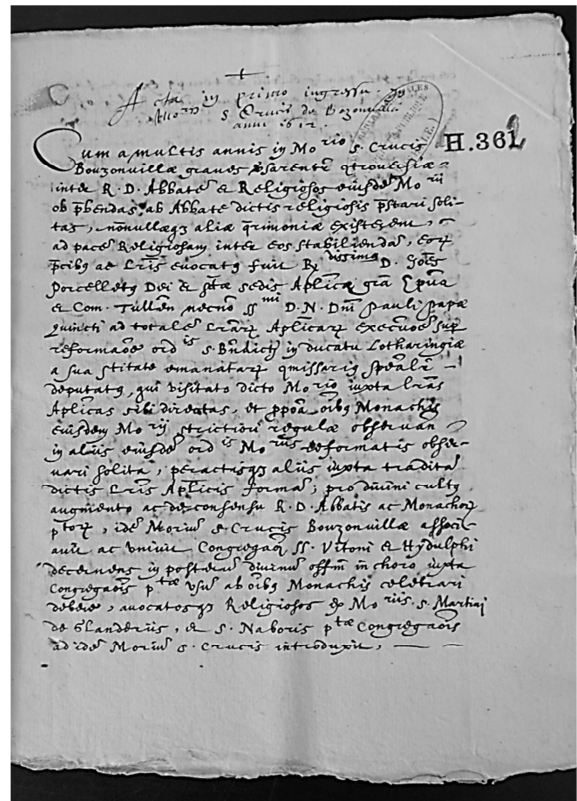 Acta in primo ingressu in
Morii S Crucis de Bozonvilla
anni 1612.
H.361
Cum a multis annis in Morio s. Crucis
Bouzonvillæ graves
inter R. D. Abbatē et Religiosos eiusdē Morii
ob p̄bendas ab Abbate dictis religiosis p̄stari soli-
tas, nōnullæq3 aliæ q̄rimoniæ existerent,
ad pacē Religiosam inter eos stabiliendā,
p̄cibus ac Lr̄is evocatus fuit Rdissimus D. Joēs
Porcelletus Dei et stæ sedis Aplicæ grā Ep̄us
et Com. Tullen necnō SSmi D. N. Dn̄i Pauli Papæ
Quincti ad totalē Lr̄arū Aplicarū execuōe sup
reformaōe ordis s. Bn̄dicti in ducatu Lotharingiæ
a sua stitate emanatarū q̄missarius speālr̄
deputatus, qui visitato dicto Morio iuxta lr̄as
Aplicas sibi directas, et ppoā oibus Monachis
eiusdem Morii strictiori regulæ observan
in aliis eiusdē ordis Moriis reformatis obser-
vari solita, peractisq3 aliis iuxta traditā
dictis Lr̄is Aplicis formā; pro divini cultus
augmento ac de consensu R. D. Abbatis ac Monachorū
ptorū, idē Moriū S Crucis Bouzonvillæ associ-
avit ac univit Congregaōi SS. Vitoni et Hydulphi
decernens in posterū divinū offm in choro iuxta
Congregaōis ptæ usū ab oibus Monachis celebrari
debere, avocatosq3 Religiosos ex Moriis s. Martini
de Glanderiis, et S. Naboris ptæ Congregaōis
ad idē Moriū S. Crucis introduxit,